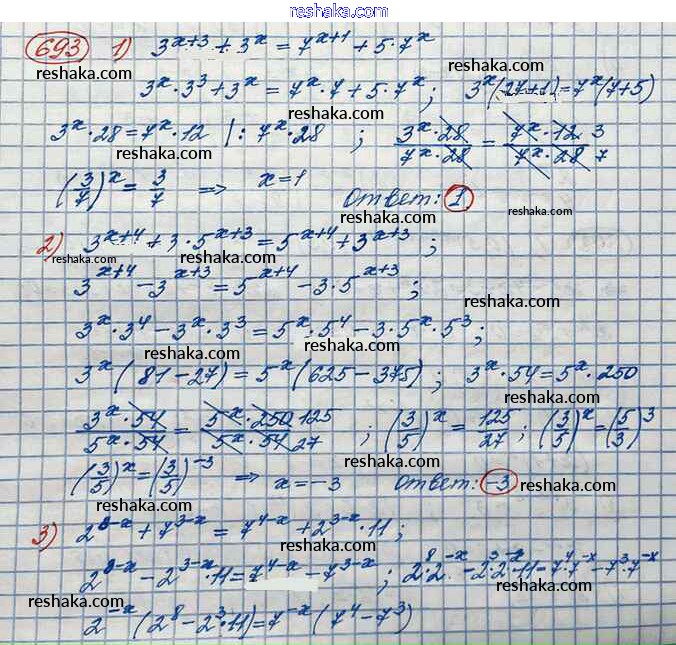 www.reshaka.com
693 1) 3^{x+3} + 3^x = 7^{x+1} + 5·7^x
reshaka.com
reshaka.com
3^x·3^3 + 3^x = 7^x·7 + 5·7^x ; 3^x(27+1) = 7^x(7+5)
reshaka.com
reshaka.com
3^x·28 = 7^x·12 |: 7^x·28 ; \frac{3^x·28}{7^x·28} = \frac{7^x·12 3}{7^x·28 7}
reshaka.com
reshaka.com
(\frac{3}{7})^x = \frac{3}{7} ⇒ x=1 Ответ: 1
reshaka.com
reshaka.com
2) 3^{x+4} + 3·5^{x+3} = 5^{x+4} + 3^{x+3} ;
reshaka.com
reshaka.com
3^{x+4} - 3^{x+3} = 5^{x+4} - 3·5^{x+3} ;
reshaka.com
reshaka.com
3^x·3^4 - 3^x·3^3 = 5^x·5^4 - 3·5^x·5^3 ;
reshaka.com
3^x(81-27) = 5^x(625-375) ; 3^x·54 = 5^x·250
reshaka.com
reshaka.com
\frac{3^x·54}{5^x·54} = \frac{5^x·250 125}{5^x·54 27} ; (\frac{3}{5})^x = \frac{125}{27} ; (\frac{3}{5})^x = (\frac{5}{3})^3
reshaka.com
reshaka.com
(\frac{3}{5})^x = (\frac{3}{5})^{-3} ⇒ x = -3 Ответ: -3
reshaka.com
reshaka.com
3) 2^{8-x} + 7^{3-x} = 7^{4-x} + 2^{3-x}·11 ;
reshaka.com
reshaka.com
2^{8-x} - 2^{3-x}·11 = 7^{4-x} - 7^{3-x} ; 2^8·2^{-x} - 2^3·2^{-x}·11 = 7^4·7^{-x} - 7^3·7^{-x}
reshaka.com
reshaka.com
2^{-x}(2^8 - 2^3·11) = 7^{-x}(7^4 - 7^3)
reshaka.com